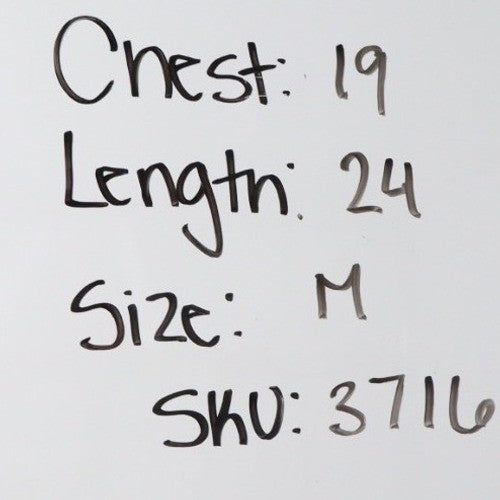 Chest: 19
Length: 24
Size: M
SKU: 3716